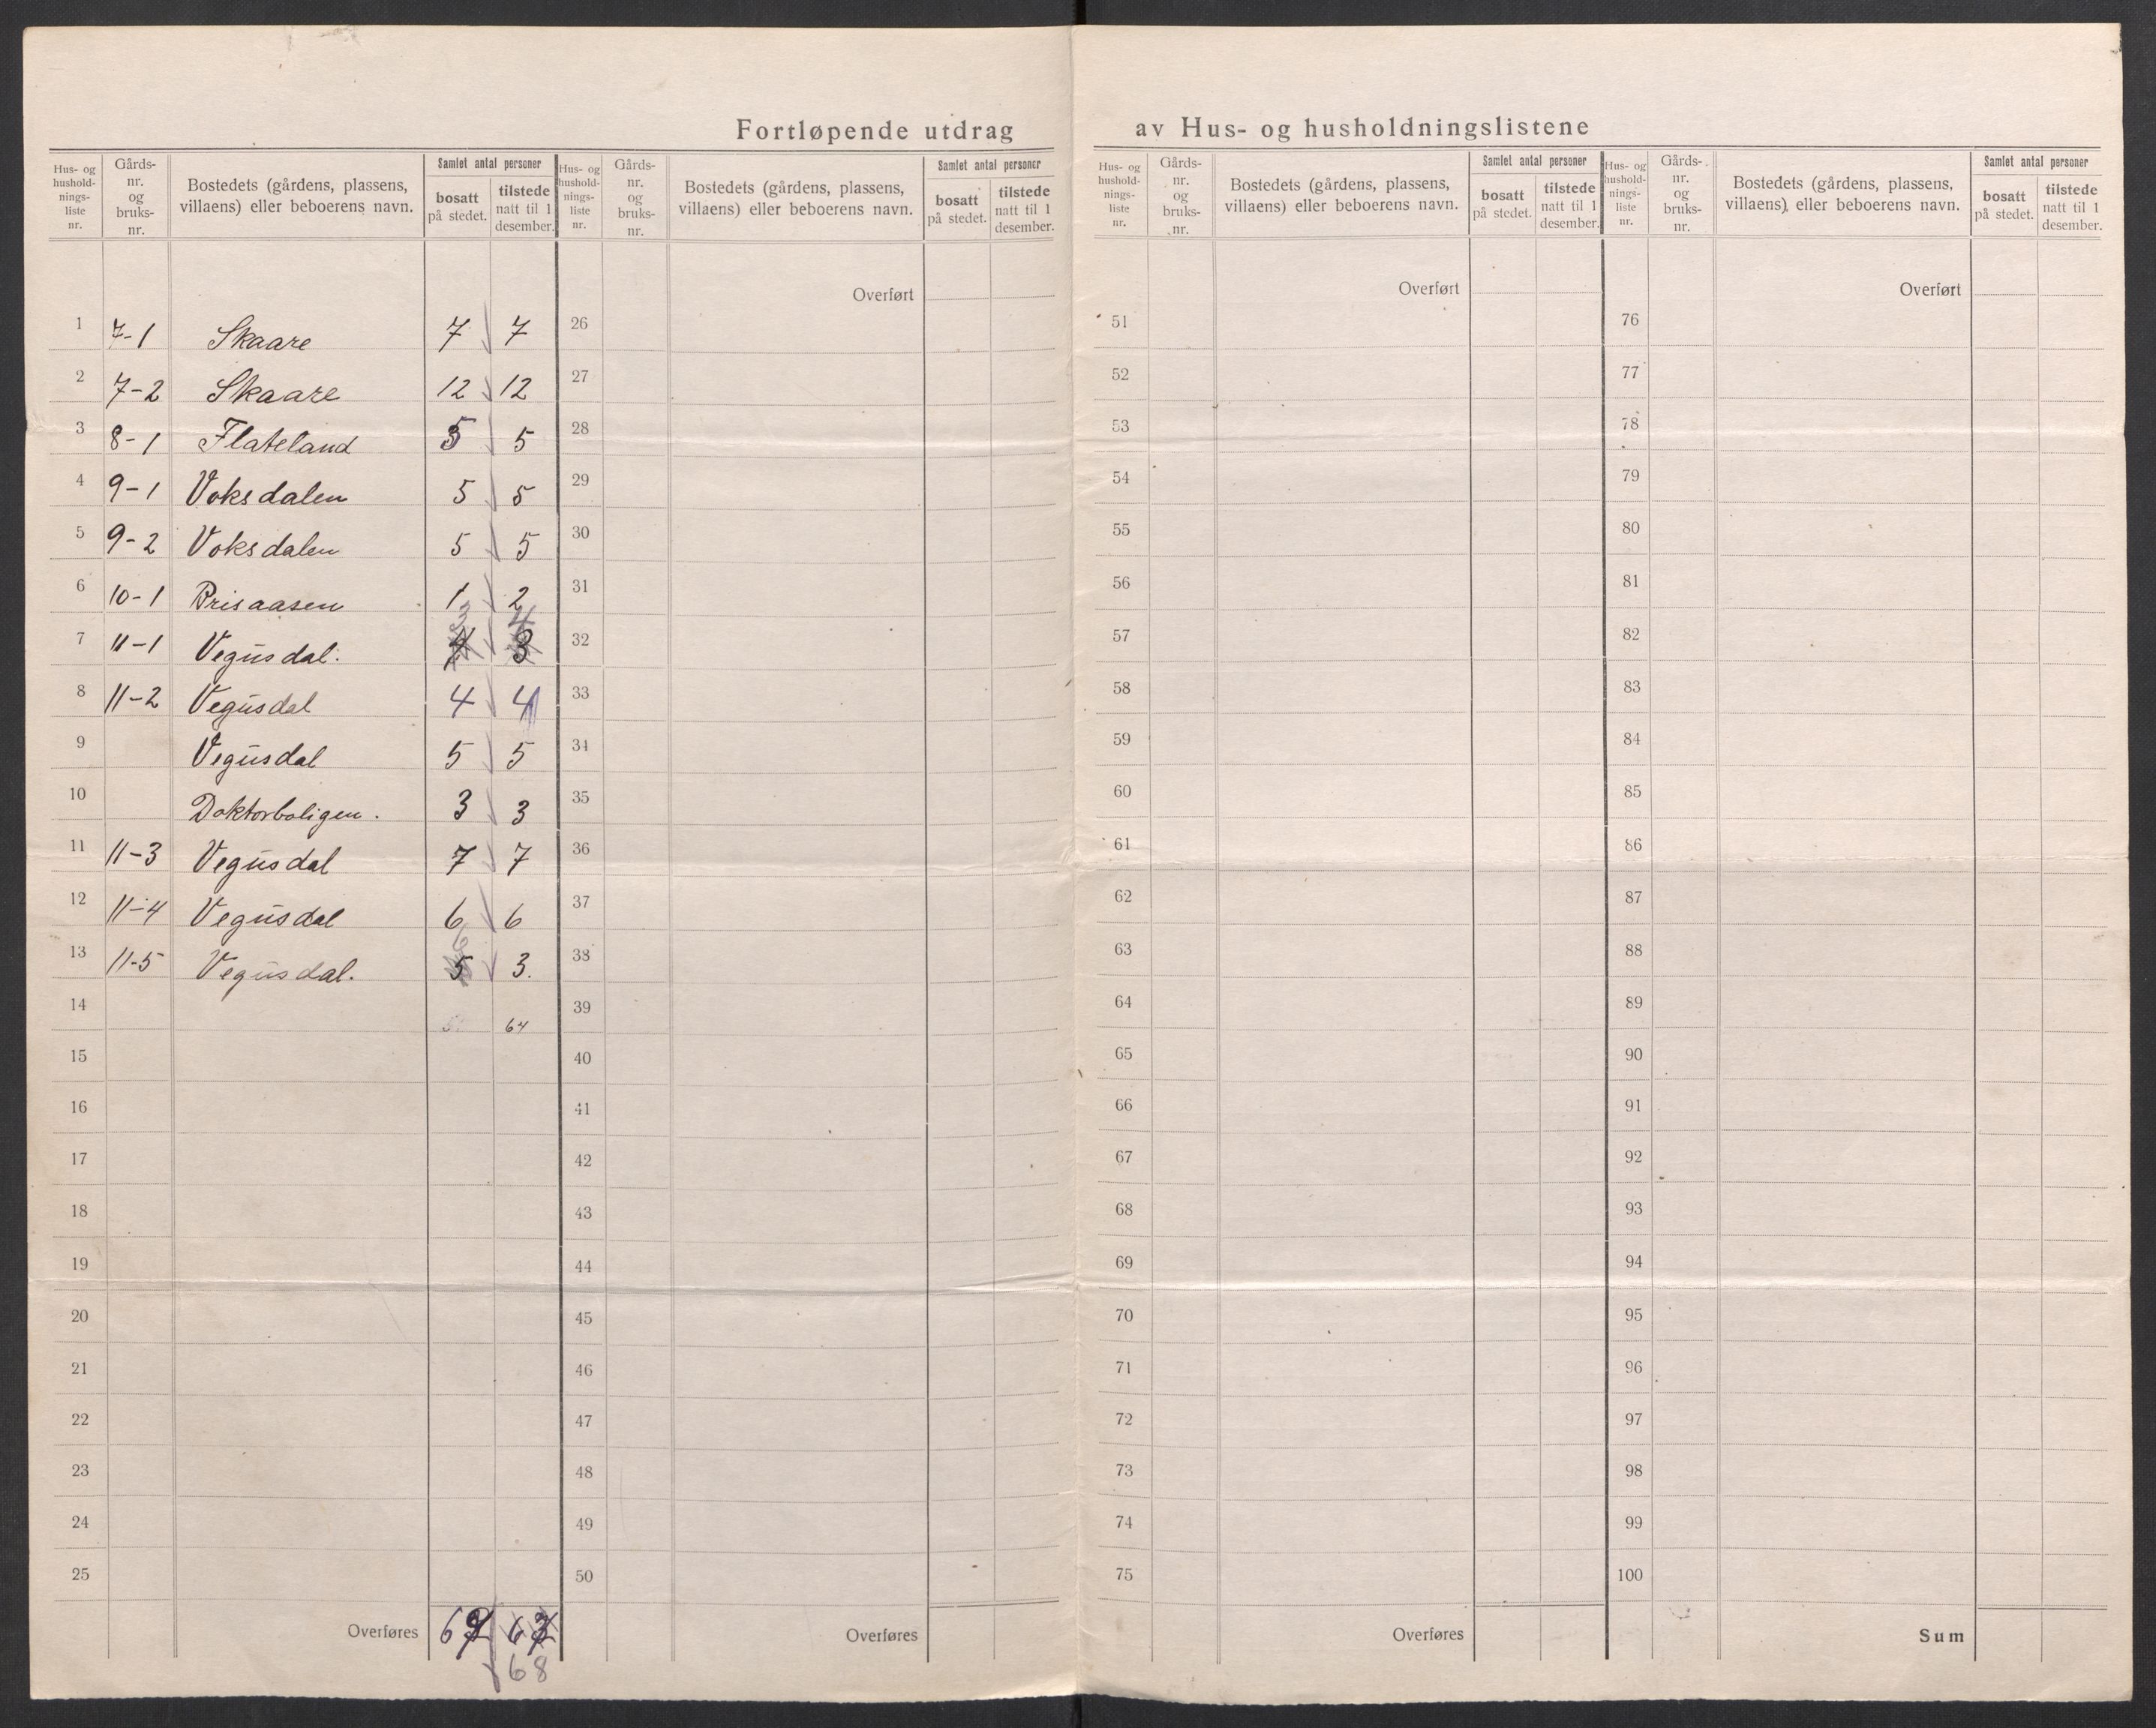 Fortløpende utdrag av Hus- og husholdningslistene
Hus- og hushold-nings-liste nr. Gårds-nr. og bruks-nr. Bostedets (gårdens, plassens, villaens) eller beboerens navn. Samlet antal personer bosatt på stedet. tilstede natt til 1 desember.
Hus- og hushold-nings-liste nr. Gårds-nr. og bruks-nr. Bostedets (gårdens, plassens, villaens) eller beboerens navn. Samlet antal personer bosatt på stedet. tilstede natt til 1 desember.
Hus- og hushold-nings-liste nr. Gårds-nr. og bruks-nr. Bostedets (gårdens, plassens, villaens) eller beboerens navn. Samlet antal personer bosatt på stedet. tilstede natt til 1 desember.
Hus- og hushold-nings-liste nr. Gårds-nr. og bruks-nr. Bostedets (gårdens, plassens, villaens) eller beboerens navn. Samlet antal personer bosatt på stedet. tilstede natt til 1 desember.
Overført Overført Overført
1 7-1 Skaare 7 7 26 51 76
2 7-2 Skaare 12 12 27 52 77
3 8-1 Flateland 5 5 28 53 78
4 9-1 Voksdalen 5 5 29 54 79
5 9-2 Voksdalen 5 5 30 55 80
6 10-1 Prisaasen 1 2 31 56 81
7 11-1 Vegusdal. 4 32 57 82
8 11-2 Vegusdal 4 4 33 58 83
9 Vegusdal 5 5 34 59 84
10 Doktorboligen. 3 3 35 60 85
11 11-3 Vegusdal 7 7 36 61 86
12 11-4 Vegusdal 6 6 37 62 87
13 11-5 Vegusdal. 5 3. 38 63 88
14 64 39 64 89
15 40 65 90
16 41 66 91
17 42 67 92
18 43 68 93
19 44 69 94
20 45 70 95
21 46 71 96
22 47 72 97
23 48 73 98
24 49 74 99
25 50 75 100
Overføres Overføres Overføres Sum
68